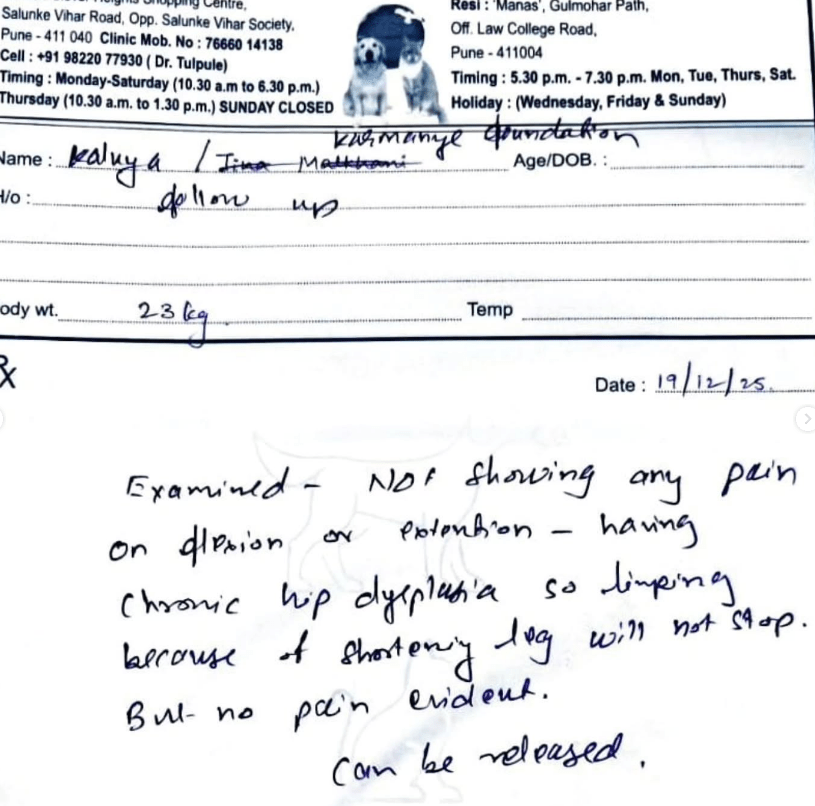 Shopping Centre,
Salunke Vihar Road, Opp. Salunke Vihar Society,
Pune - 411 040 Clinic Mob. No : 76660 14138
Cell : +91 98220 77930 ( Dr. Tulpule)
Timing : Monday-Saturday (10.30 a.m to 6.30 p.m.)
Thursday (10.30 a.m. to 1.30 p.m.) SUNDAY CLOSED
Resi : 'Manas', Gulmohar Path,
Off. Law College Road,
Pune - 411004
Timing : 5.30 p.m. - 7.30 p.m. Mon, Tue, Thurs, Sat.
Holiday : (Wednesday, Friday & Sunday)
Karmanye foundation
Name : Kaluya / Tina Age/DOB. :
H/o : follow up
ody wt. 23 kg Temp
Rx
Date : 19/12/25.
Examined - Not showing any pain
on flexion or extention - having
chronic hip dysplasia so limping
because of shortening leg will not stop.
But no pain evident.
Can be released.